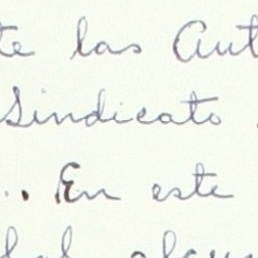 te las Aut
Sindicato
.. En este